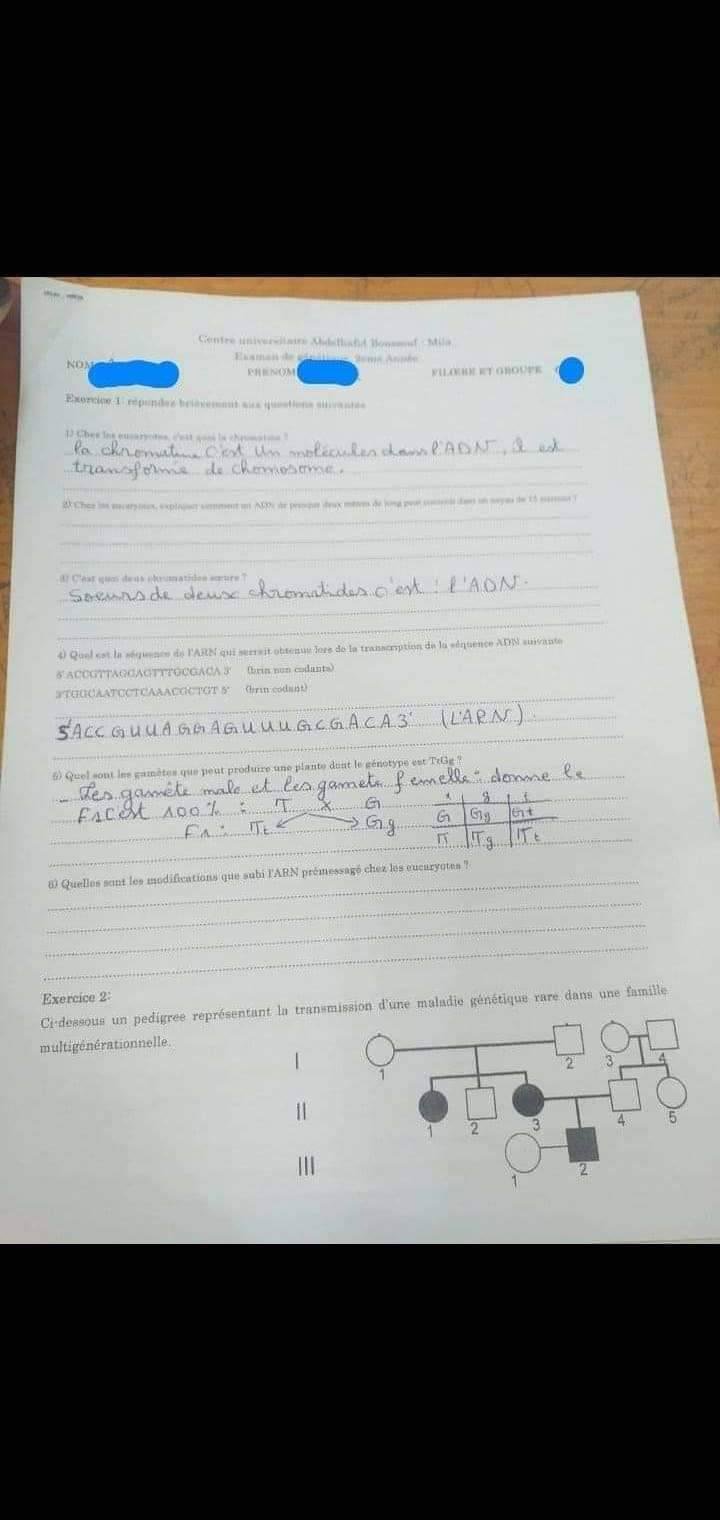 Centre universitaire Abdelhafid Boussouf - Mila
Examen de génétique 2eme Année
NOM PRENOM FILIERE ET GROUPE
Exercice 1: répondez brièvement aux questions suivantes
1) Chez les eucaryotes, c'est quoi la chromatine ?
la chromatine c'est un molécules dans l'ADN, il est
transformé de chomosome.
2) Chez les eucaryotes, expliquer comment un ADN de presque deux mètres de long peut contenir dans un noyau de 15
3) C'est quoi deux chromatides sœurs ?
Soeurs de deux chromatides c'est : l'ADN.
4) Quel est la séquence de l'ARN qui serrait obtenue lors de la transcription de la séquence ADN suivante
5' ACCGTTAGGAGTTTGCGACA 3' (brin non codante)
3'TGGCAATCCTCAAACGCTGT 5' (brin codant)
5'ACCGUUAGGAGUUUGCGACA3' (L'ARN).
5) Quel sont les gamètes que peut produire une plante dont le génotype est TtGg ?
- Les gamète male et les gamete femelle : donne le
F1 C'est 100% : T X G
F1 : Tt Gg
g t
G Gg Gt
T Tg Tt
6) Quelles sont les modifications que subi l'ARN prémessagé chez les eucaryotes ?
Exercice 2:
Ci-dessous un pedigree représentant la transmission d'une maladie génétique rare dans une famille
multigénérationnelle.
I 1 2 3 4
II 1 2 3 4 5
III 1 2